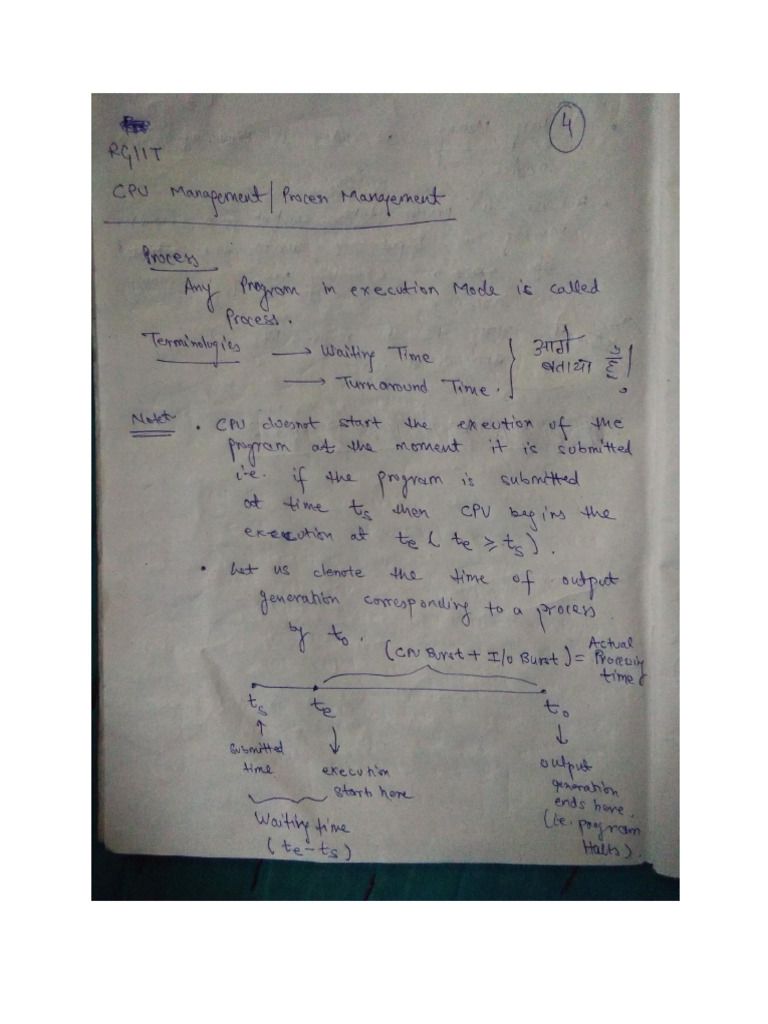 4
RGIIT
CPU Management | Process Management
Process
Any Program in execution Mode is called
Process.
Terminologies → Waiting Time
→ Turnaround Time.
} आगे
बताया है!
Note • CPU doesnot start the exeution of the
program at the moment it is submitted
i.e. if the program is submitted
at time ts then CPU begins the
execution at te ( te ≥ ts ).
• Let us denote the time of output
generation corresponding to a process
by to.
(CPU Burst + I/O Burst) = Actual
Processing
time
ts te to
↑ ↓ ↓
submitted
time
execution
start here
output
generation
ends here.
(i.e. program
Halts).
Waiting time
( te - ts )